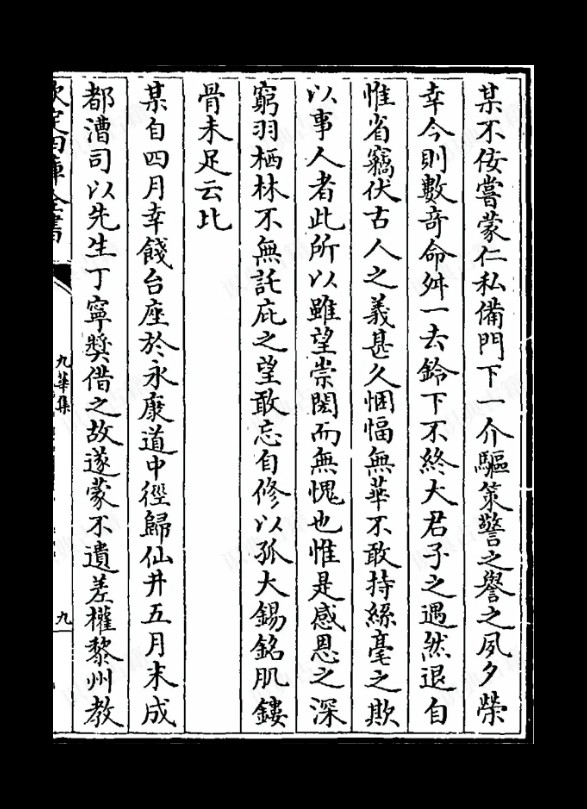 某不佞嘗蒙仁私備門下一介驅策警之譽之夙夕榮
幸今則數奇命舛一去鈴下不終大君子之遇然退自
惟省竊伏古人之義甚久悃愊無華不敢持絲毫之欺
以事人者此所以雖望崇閎而無愧也惟是感恩之深
窮羽栖林不無託庇之望敢忘自修以孤大錫銘肌鏤
骨未足云比
某自四月幸餞台座於永康道中徑歸仙井五月末成
都漕司以先生丁寧獎借之故遂蒙不遺差權黎州教
欽定四庫全書
九華集
九